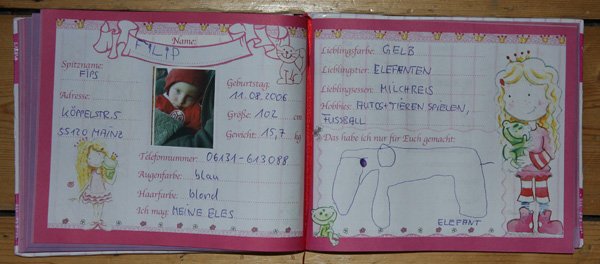 Name:
FILIP
Spitzname:
FIPS
Adresse:
KÖPPELSTR. 5
55120 MAINZ
Geburtstag:
11.08.2006
Größe: 102 cm
Gewicht: 15,7 kg
Telefonnummer: 06131-613088
Augenfarbe: blau
Haarfarbe: blond
Ich mag: MEINE ELES
Lieblingsfarbe: GELB
Lieblingstier: ELEFANTEN
Lieblingsessen: MILCHREIS
Hobbies: AUTOS + TIEREN SPIELEN,
FUSSBALL
Das habe ich nur für Euch gemacht:
ELEFANT